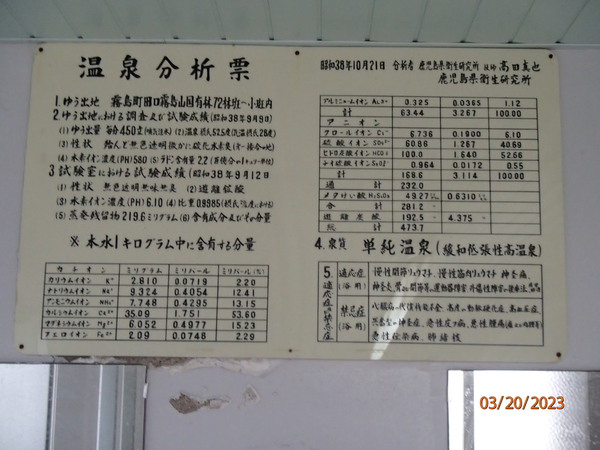 温泉分析票
1. ゆう出地 霧島町田口霧島山国有林72林班へ小班内
2. ゆう出地における調査及び試験成績(昭和38年9月9日)
(1) ゆう出量 毎分450立 (2) 温度 摂氏52.5度(気温摂氏28度)
(3) 性状 殆んど無色透明微かに硫化水素臭
(4) 水素イオン濃度(PH)5.80 (5) ラドン含有量 2.2
3 試験室における試験成績(昭和38年9月12日
(1) 性状 無色透明無味無臭 (2) 遊離鉱酸
(3) 水素イオン濃度(PH)6.10 (4) 比重 0.9985
(5) 蒸発残留物 219.6ミリグラム (6) 含有成分及びその分量
※ 本水1キログラム中に含有する分量
カチオン ミリグラム ミリバール ミリバール(%)
カリウムイオン K⁺ 2.810 0.0719 2.20
ナトリウムイオン Na⁺ 9.324 0.4054 12.41
アンモニウムイオン NH₄⁺ 7.748 0.4295 13.15
カルシウムイオン Ca²⁺ 35.09 1.751 53.60
マグネシウムイオン Mg²⁺ 6.052 0.4977 15.23
フエロイオン Fe²⁺ 2.09 0.0748 2.29
昭和38年10月21日 分析者 鹿児島県衛生研究所 技師 高田真也
鹿児島県衛生研究所
アルミニュームイオン AL³⁺ 0.325 0.0365 1.12
計 63.44 3.267 100.00
アニオン
クロールイオン CL⁻ 6.736 0.1900 6.10
硫酸イオン SO₄²⁻ 60.86 1.267 40.69
ヒドロ炭酸イオン HCO₃⁻ 100.0 1.640 52.66
チオ硫酸イオン S₂O₃²⁻ 0.964 0.0172 0.55
計 168.6 3.114 100.00
通計 232.0
メタけい酸 H₂SiO₃ 49.27 0.6310
合計 281.2
遊離炭酸 192.5 4.375
総計 473.7
4. 泉質 単純温泉(緩和低張性高温泉)
5. 適応症と禁忌症
適応症(浴用) 慢性関節リュウマチ、慢性筋肉リュウマチ、神経痛、
神経炎、
禁忌症(浴用)
急性伝染病、肺結核
03/20/2023